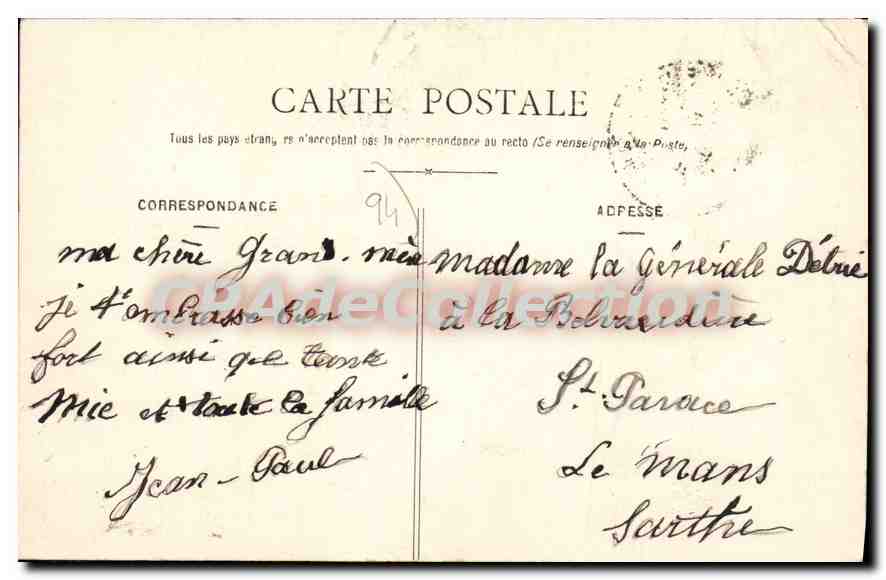 CARTE POSTALE
Tous les pays étrangers n'acceptent pas la correspondance au recto (Se renseigner à la Poste)
94
CORRESPONDANCE
ma chère Grand-mèr
je t'embrasse bien
fort ainsi que tante
Mie et toute la famille
Jean-Paul
ADRESSE
Madame la Générale Détrie
à la
St. Pavace
Le Mans
Sarthe
CPAdeCollection.com